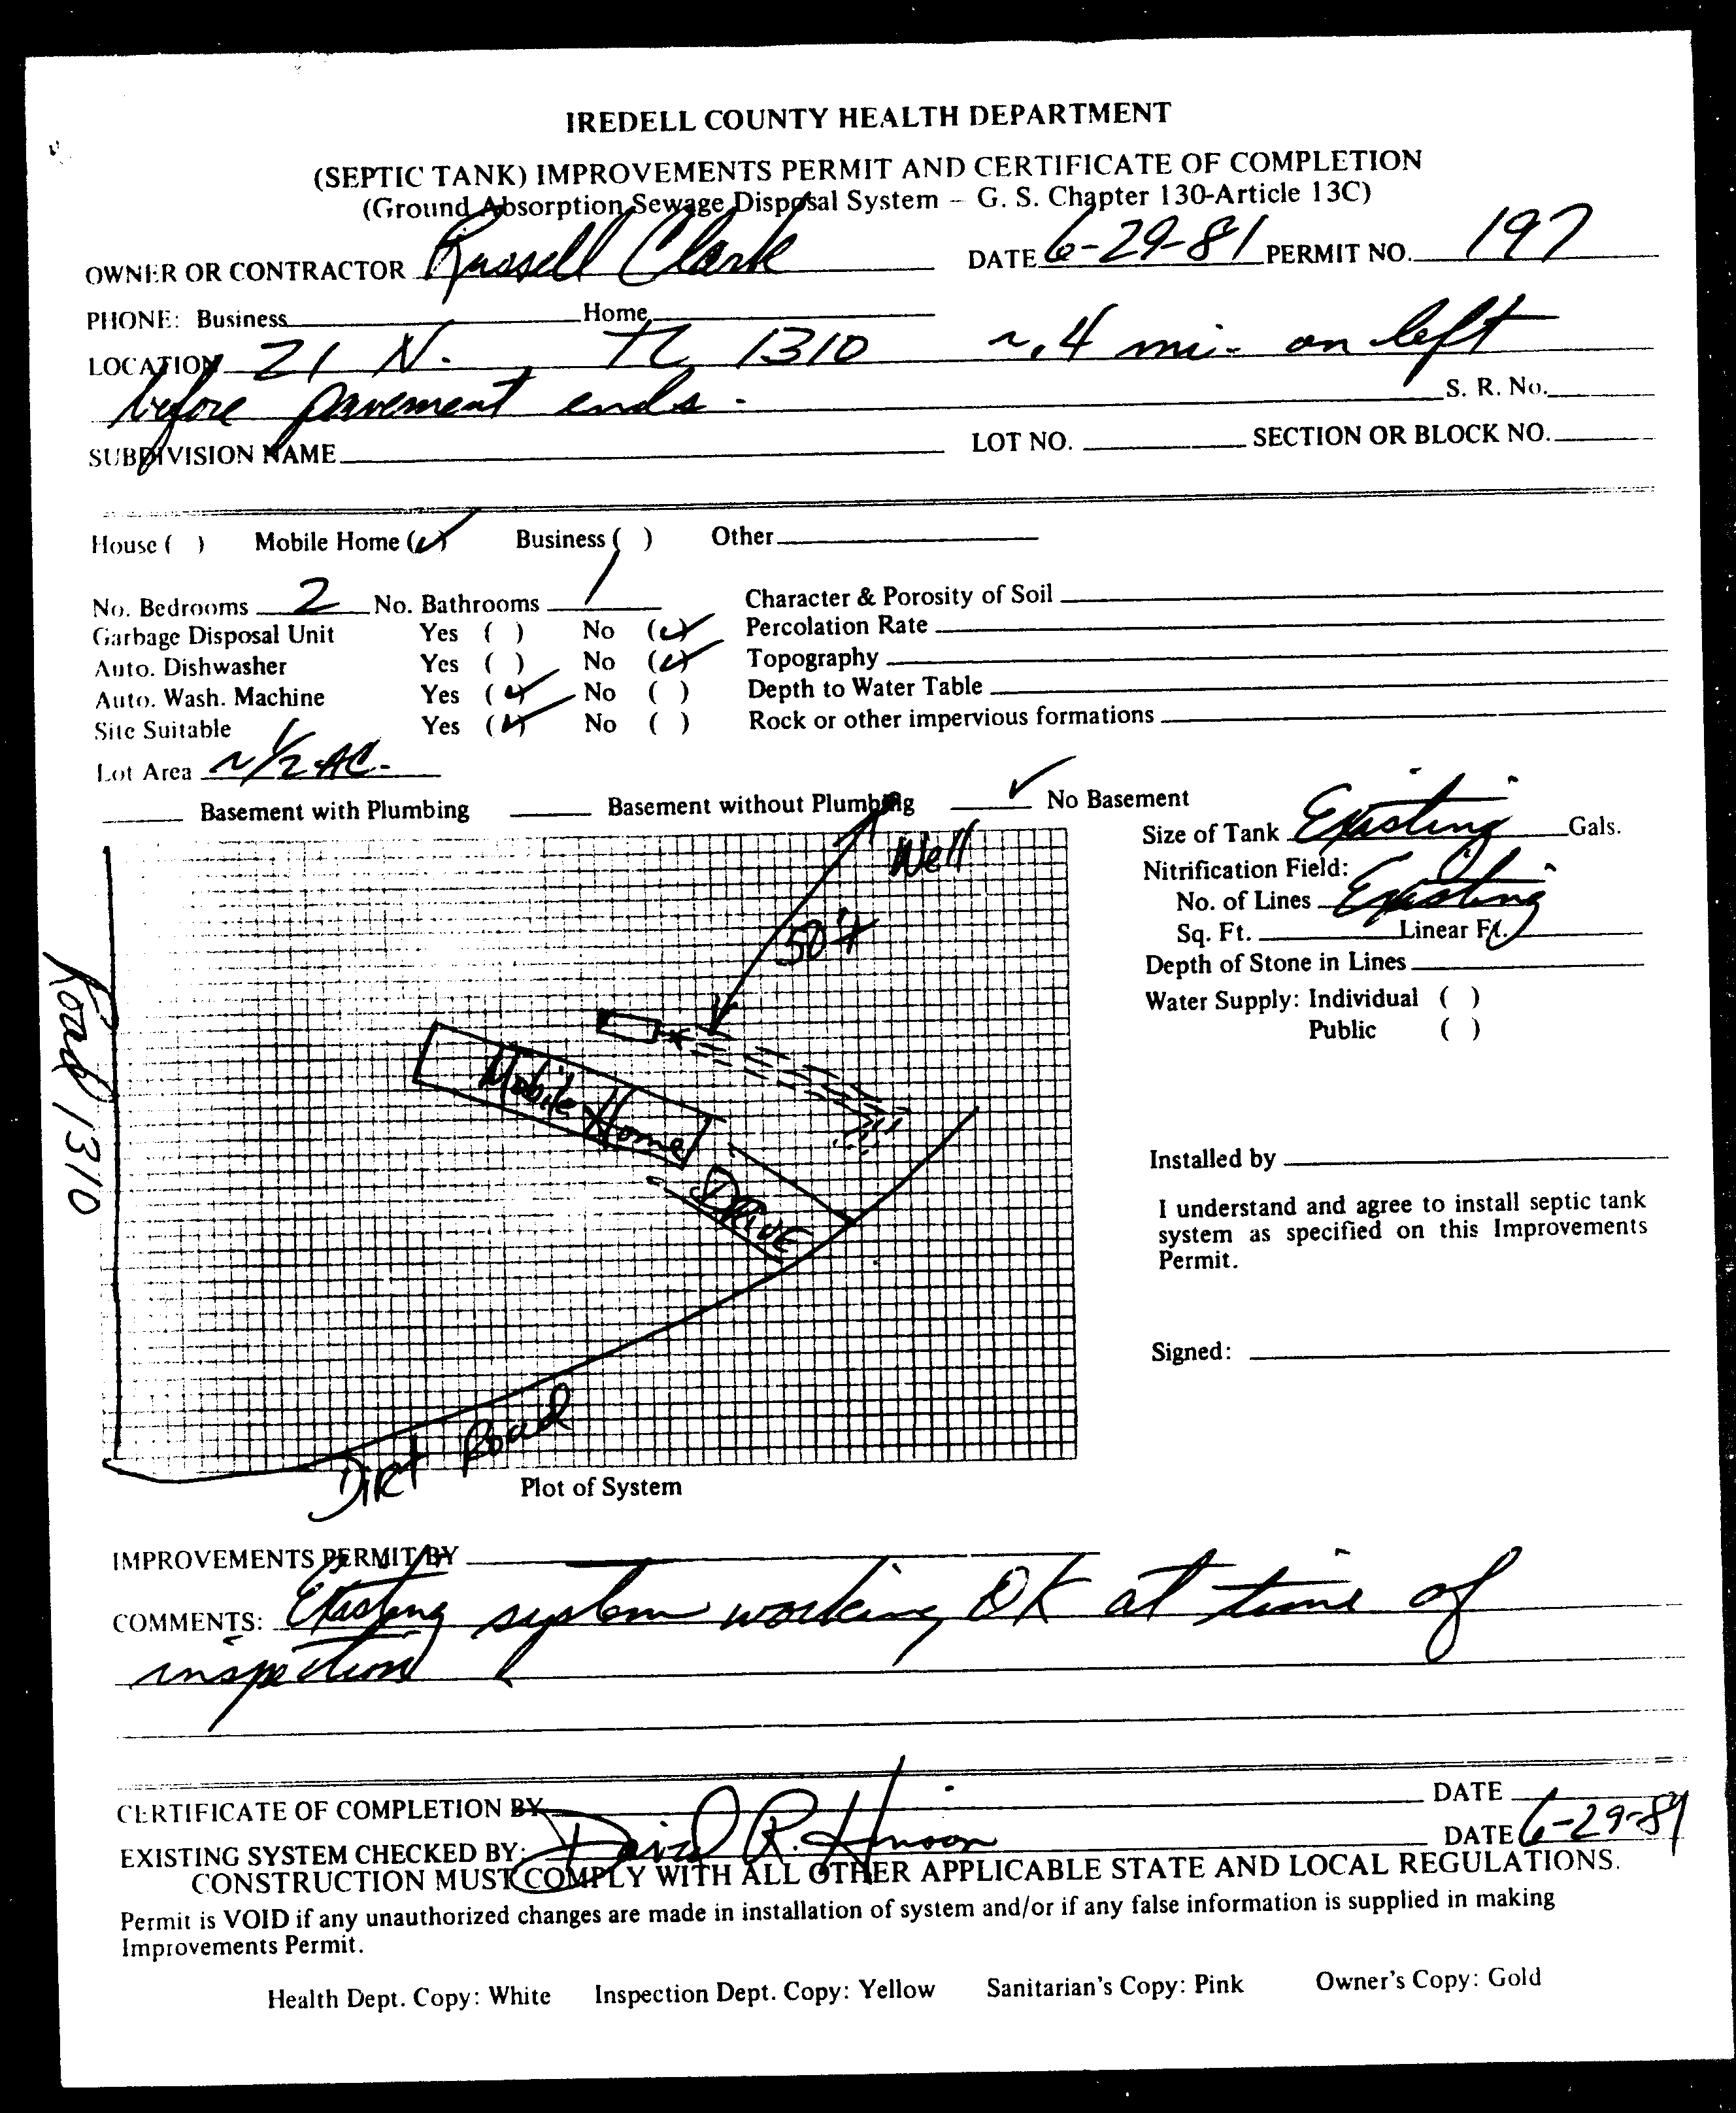 IREDELL COUNTY HEALTH DEPARTMENT
(SEPTIC TANK) IMPROVEMENTS PERMIT AND CERTIFICATE OF COMPLETION
(Ground Absorption Sewage Disposal System – G. S. Chapter 130-Article 13C)
OWNER OR CONTRACTOR Russell Clark DATE 6-29-81 PERMIT NO. 197
PHONE: Business Home
LOCATION 21 N. TL 1310 ~.4 mi. on left
before pavement ends. S. R. No.
SUBDIVISION NAME LOT NO. SECTION OR BLOCK NO.
House ( ) Mobile Home (✓) Business ( ) Other
No. Bedrooms 2 No. Bathrooms 1 Character & Porosity of Soil
Garbage Disposal Unit Yes ( ) No (✓) Percolation Rate
Auto. Dishwasher Yes ( ) No (✓) Topography
Auto. Wash. Machine Yes (✓) No ( ) Depth to Water Table
Site Suitable Yes (✓) No ( ) Rock or other impervious formations
Lot Area ~1/2 AC.
Basement with Plumbing Basement without Plumbing ✓ No Basement
Size of Tank Existing Gals.
Nitrification Field:
No. of Lines Existing
Sq. Ft. Linear Ft.
Depth of Stone in Lines
Water Supply: Individual ( )
Public ( )
Installed by
I understand and agree to install septic tank
system as specified on this Improvements
Permit.
Signed:
Well
50'+
Mobile Home
Drive
Road 1310
Dirt Road
Plot of System
IMPROVEMENTS PERMIT BY
COMMENTS: Existing system working OK at time of
inspection
CERTIFICATE OF COMPLETION BY DATE
EXISTING SYSTEM CHECKED BY: David R. Hinson DATE 6-29-81
CONSTRUCTION MUST COMPLY WITH ALL OTHER APPLICABLE STATE AND LOCAL REGULATIONS.
Permit is VOID if any unauthorized changes are made in installation of system and/or if any false information is supplied in making
Improvements Permit.
Health Dept. Copy: White Inspection Dept. Copy: Yellow Sanitarian's Copy: Pink Owner's Copy: Gold